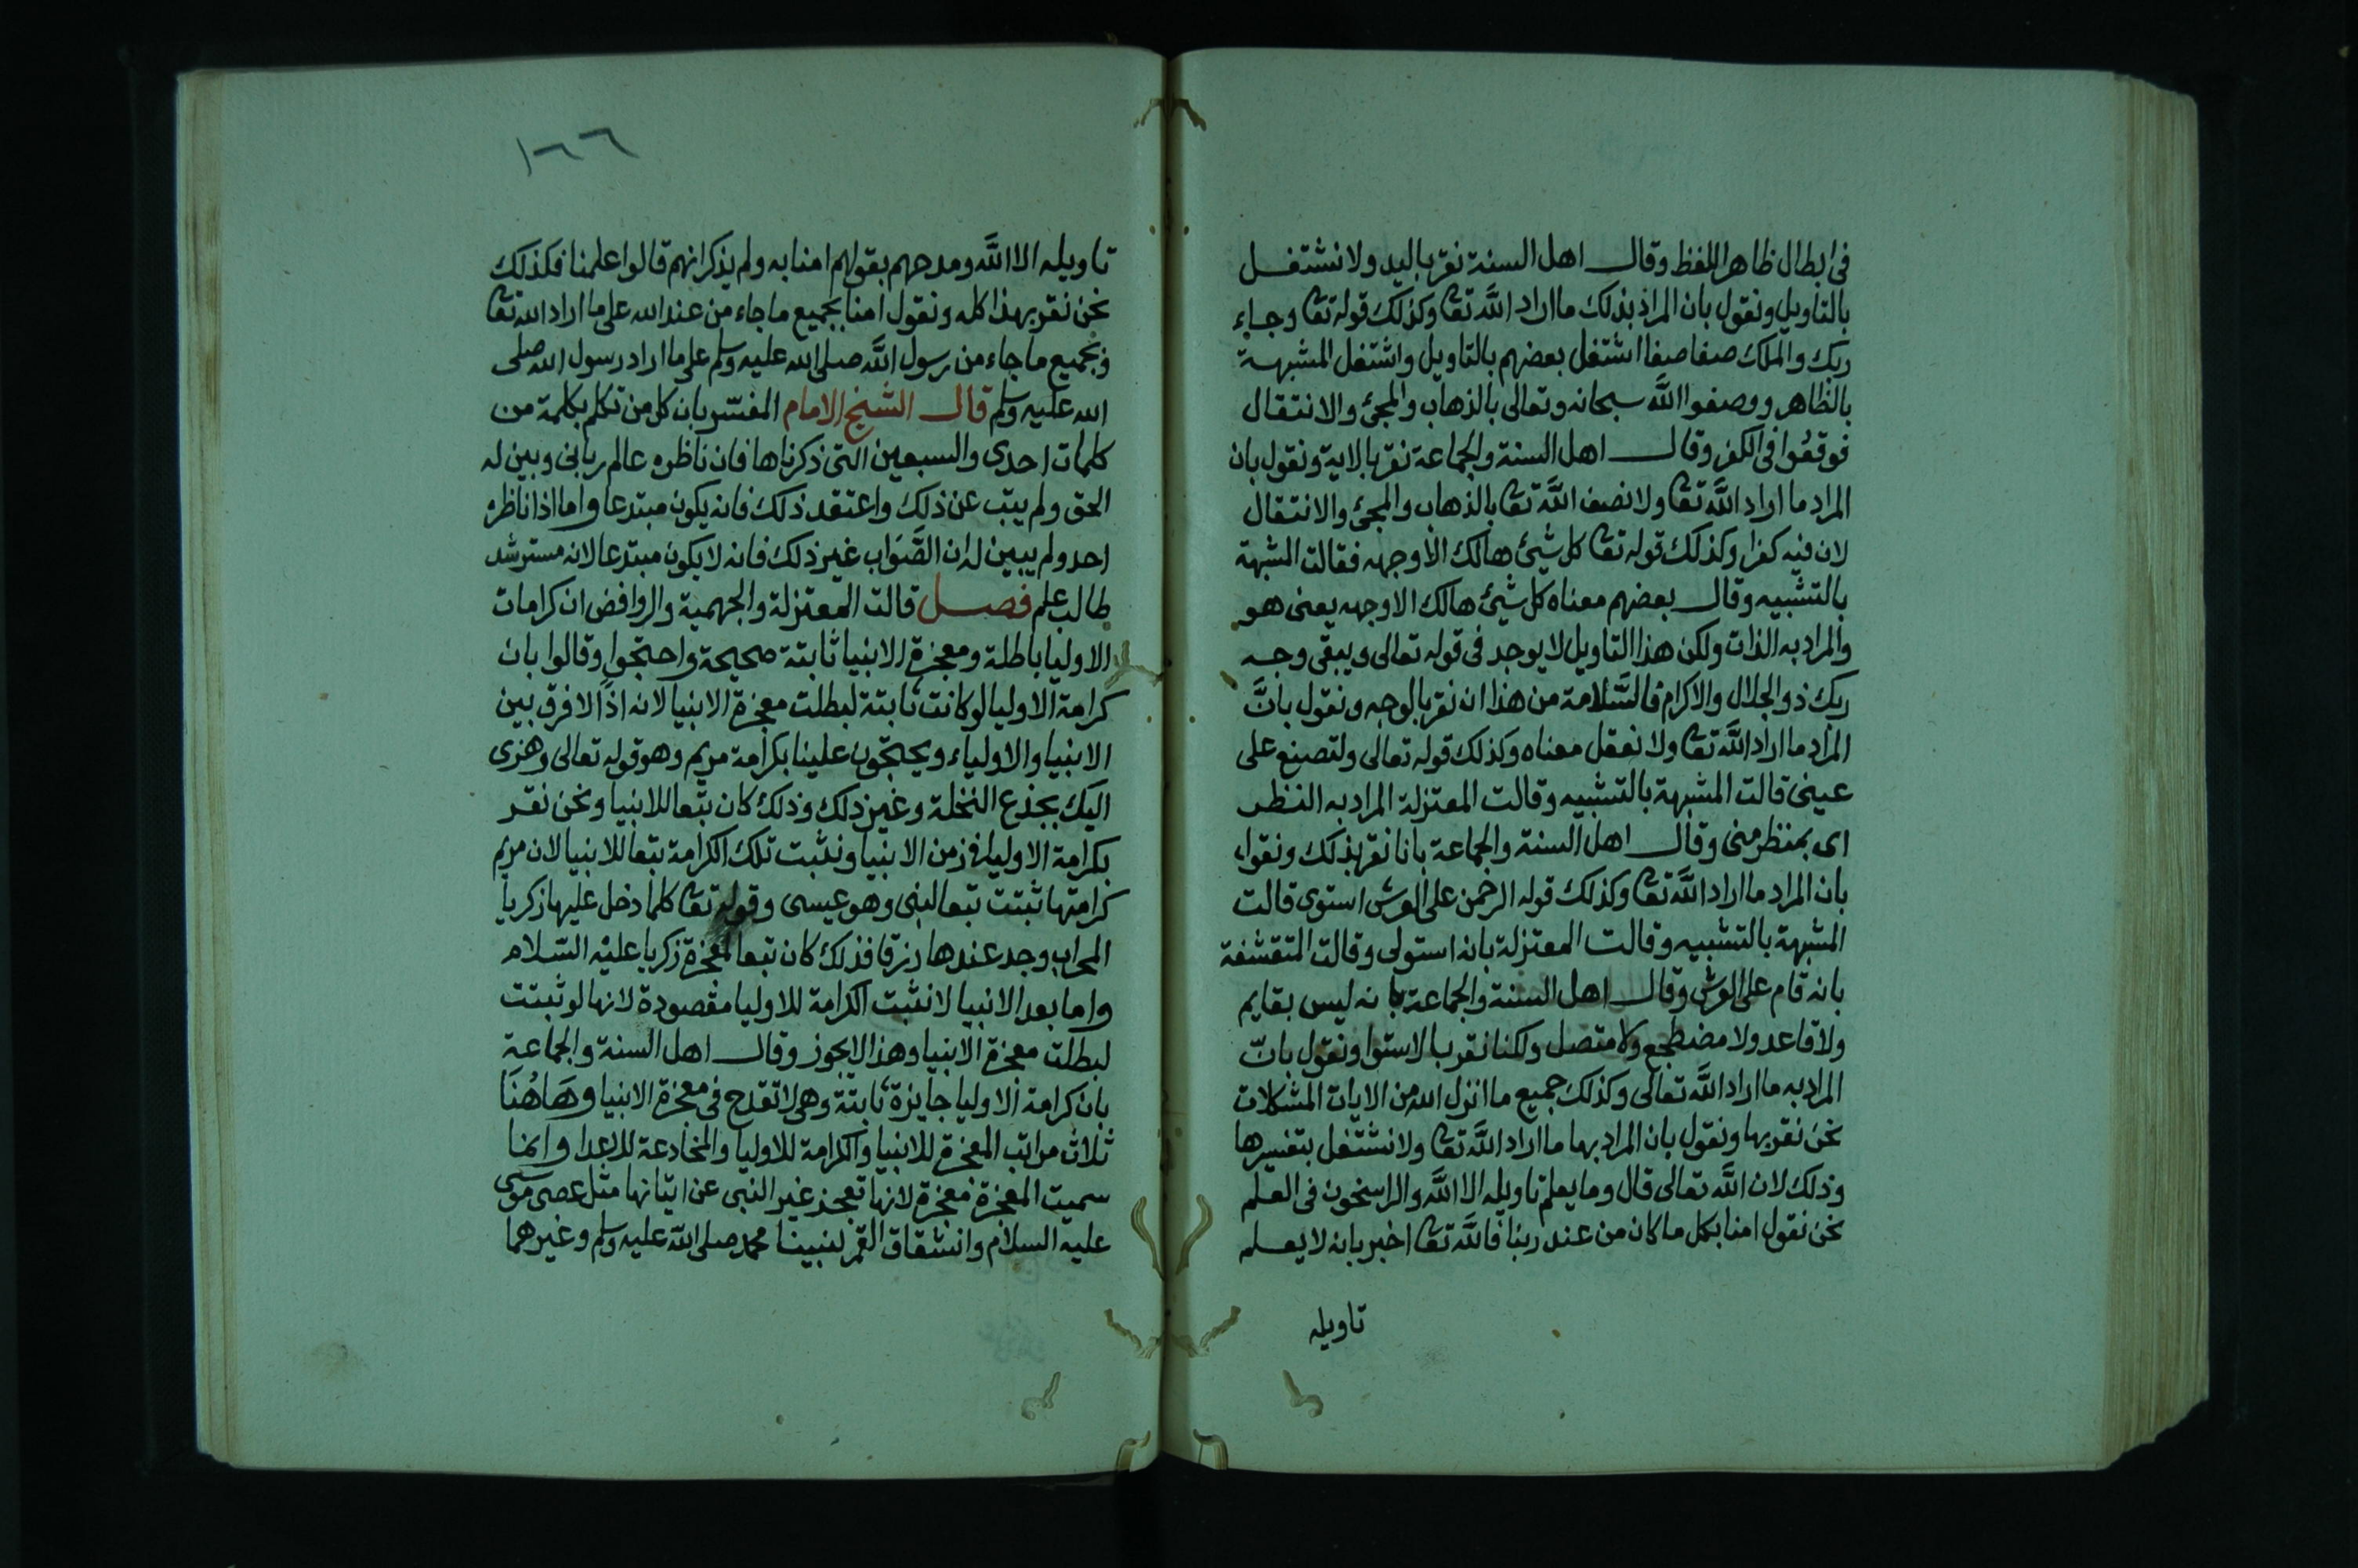 في ابطال ظاهر اللفظ وقال اهل السنة نقر باليد ولا نشتغل
بالتاويل ونقول بان المراد بذلك ما اراد الله تعا وكذلك قوله تعا وجاء
ربك والملك صفا صفا اشتغل بعضهم بالتاويل واشتغل المشبهة
بالظاهر ووصفوا الله سبحانه وتعالى بالذهاب والمجئ والانتقال
فوقعوا في الكفر وقال اهل السنة والجماعة نقر بالاية ونقول بان
المراد ما اراد الله تعا ولا نصف الله تعا بالذهاب والمجئ والانتقال
لان فيه كفرا وكذلك قوله تعا كل شيئ هالك الا وجهه فقالت المشبهة
بالتشبيه وقال بعضهم معناه كل شيئ هالك الا وجهه يعنى هو
والمراد به الذات ولكن هذا التاويل لا يوجد في قوله تعالى ويبقى وجه
ربك ذو الجلال والاكرام فالسلامة من هذا ان نقر بالوجه ونقول بان
المراد ما اراد الله تعا ولا نعقل معناه وكذلك قوله تعالى ولتصنع على
عينى قالت المشبهة بالتشبيه وقالت المعتزلة المراد به النظر
اى بمنظر منى وقال اهل السنة والجماعة بانا نقر بذلك ونقول
بان المراد ما اراد الله تعا وكذلك قوله الرحمن على العرش استوى قالت
المشبهة بالتشبيه وقالت المعتزلة بانه استولى وقالت المتقشفة
بانه قام على العرش وقال اهل السنة والجماعة بانه ليس بقايم
ولا قاعد ولا مضطجع ولا متصل ولكنا نقر بالاستوا ونقول بان
المراد به ما اراد الله تعالى وكذلك جميع ما انزل الله من الايات المشكلات
نحن نقر بها ونقول بان المراد بها ما اراد الله تعا ولا نشتغل بتفسيرها
وذلك لان الله تعالى قال وما يعلم تاويله الا الله والراسخون في العلم
نحن نقول امنا بكل ما كان من عند ربنا فالله تعا اخبر بانه لا يعلم
تاويله
١٦٦
تاويله الا الله ومدحهم بقولهم امنا به ولم يذكر انهم قالوا علمنا فكذلك
نحن نقر بهذا كله ونقول امنا بجميع ما جاء من عند الله على ما اراد الله تعا
وبجميع ما جاء من رسول الله صلى الله عليه وسلم على ما اراد رسول الله صلى
الله عليه وسلم قال الشيخ الامام المفسر بان كل من تكلم بكلمة من
كلمات احدى والسبعين التى ذكرناها فان ناظره عالم ربانى وبين له
الحق ولم يتب عن ذلك واعتقد ذلك فانه يكون مبتدعا واما اذا ناظره
احد ولم يبين له ان الصواب غير ذلك فانه لا يكون مبتدعا لانه مسترشد
طالب علم فصل قالت المعتزلة والجهمية والروافض ان كرامات
الاوليا باطلة ومعجزة الانبيا ثابتة صحيحة واحتجوا وقالوا بان
كرامة الاوليا لو كانت ثابتة لبطلت معجزة الانبيا لانه اذا لا فرق بين
الانبيا والاولياء ويحتجون علينا بكرامة مريم وهو قوله تعالى وهزى
اليك بجذع النخلة وغير ذلك وذلك كان تبعا للانبيا ونحن نقر
بكرامة الاوليا في زمن الانبيا ونثبت تلك الكرامة تبعا للانبيا لان مريم
كرامتها ثبتت تبعا لنبى وهو عيسى وقوله تعا كلما دخل عليها زكريا
المحراب وجد عندها رزقا فذلك كان تبعا لمعجزة زكريا عليه السلام
واما بعد الانبيا لا نثبت الكرامة للاوليا مقصودة لانها لو ثبتت
لبطلت معجزة الانبيا وهذا لا يجوز وقال اهل السنة والجماعة
بان كرامة الاوليا جايزة ثابتة وهى لا تقدح في معجزة الانبيا وهاهنا
ثلاث مراتب المعجزة للانبيا والكرامة للاوليا والمخادعة للاعدا وانما
سميت المعجزة معجزة لانها تعجز غير النبى عن اتيانها مثل عصى موسى
عليه السلام وانشقاق القمر لنبينا محمد صلى الله عليه وسلم وغيرهما